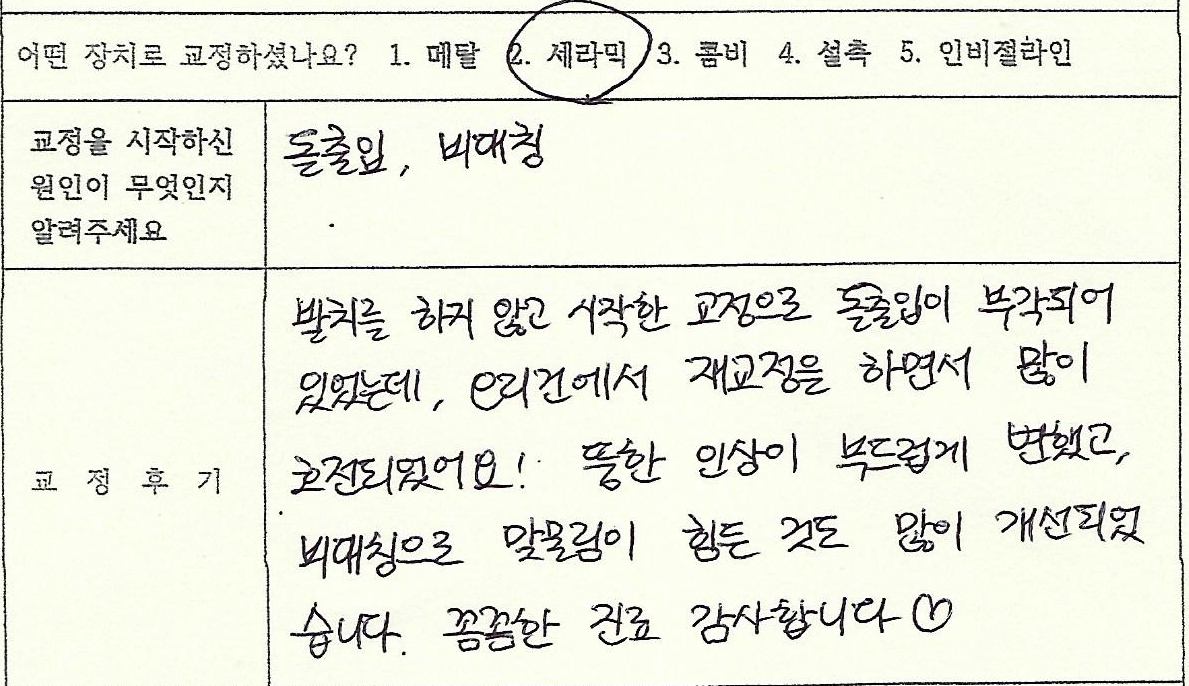 어떤 장치로 교정하셨나요? 1. 메탈 2. 세라믹 3. 콤비 4. 설측 5. 인비절라인
교정을 시작하신
원인이 무엇인지
알려주세요
돌출입, 비대칭
교 정 후 기
발치를 하지 않고 시작한 교정으로 돌출입이 부각되어
있었는데, e리건에서 재교정을 하면서 많이
호전되었어요! 뚱한 인상이 부드럽게 변했고,
비대칭으로 맞물림이 힘든 것도 많이 개선되었
습니다. 꼼꼼한 진료 감사합니다♡